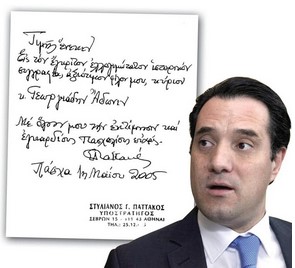 Τιμῆς ἕνεκεν
Εἰς τὸν ἔγκριτον ἐλλογιμώτατον ἱστορικὸν
συγγραφέα, ἀξιότιμον φίλον μου, κύριον
κ. Γεωργιάδην Ἄδωνιν
Μὲ ὅλην μου τὴν ἐκτίμησιν καὶ
ἐγκαρδίους Πασχαλίους εὐχάς.
Πάσχα 1η Μαΐου 2005
ΣΤΥΛΙΑΝΟΣ Γ. ΠΑΤΤΑΚΟΣ
ΥΠΟΣΤΡΑΤΗΓΟΣ
ΣΕΒΡΩΝ 15 - 43 ΑΘΗΝΑΙ
ΤΗΛ.: 25.12